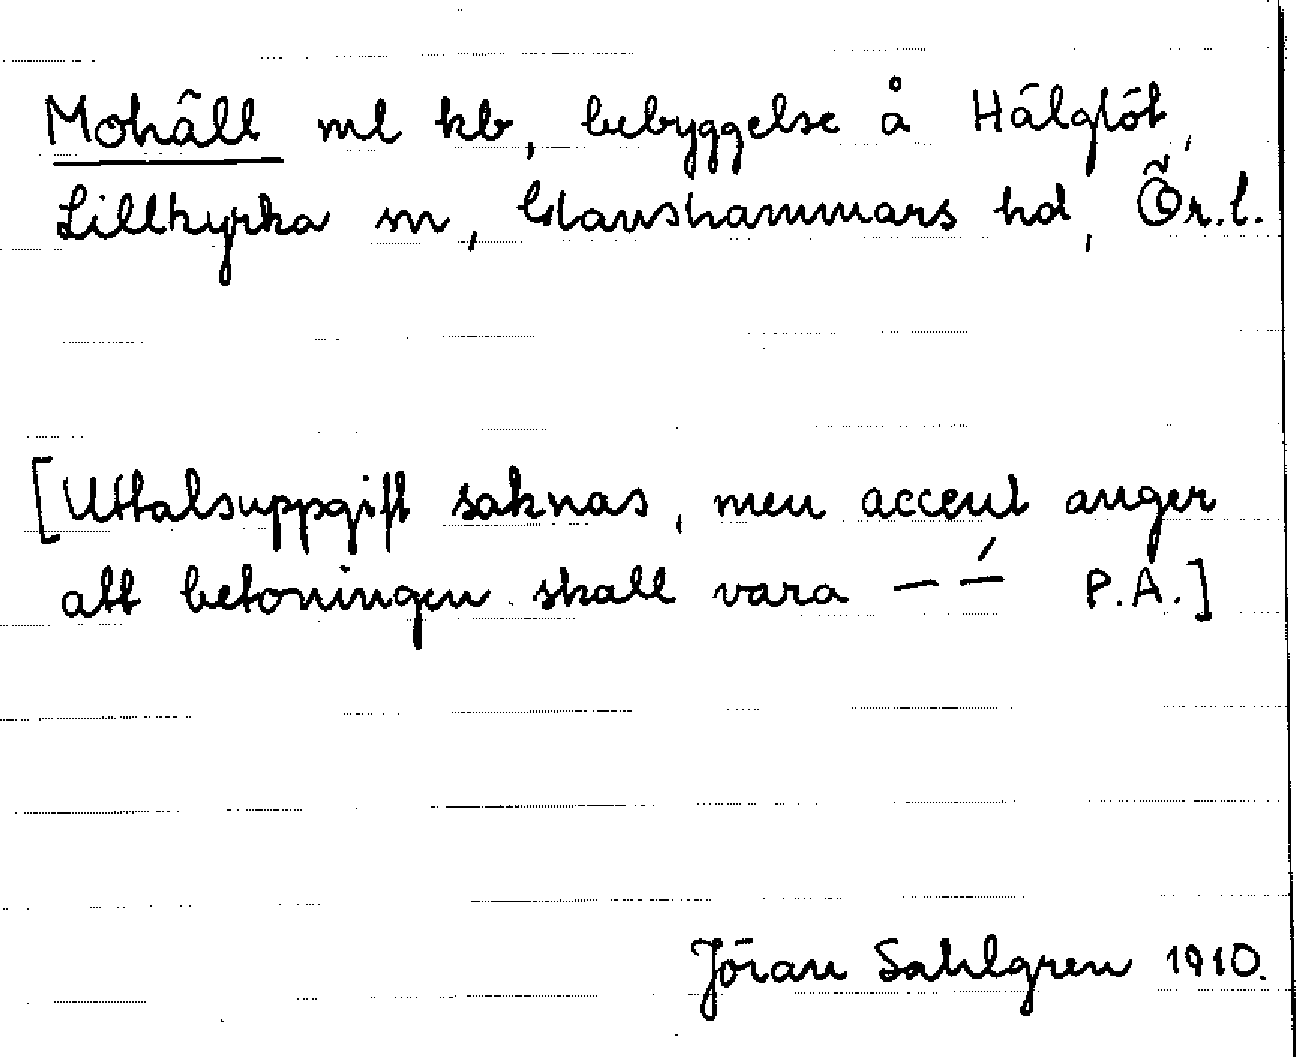 Mohäll ml kb, bebyggelse å Hälgtöt,
Lillkyrka sn, Glanshammars hd, Ör.l.
[Uttalsuppgift saknas, men accent anger
att betoningen skall vara – –́ P.A.]
Jöran Sahlgren 1910.